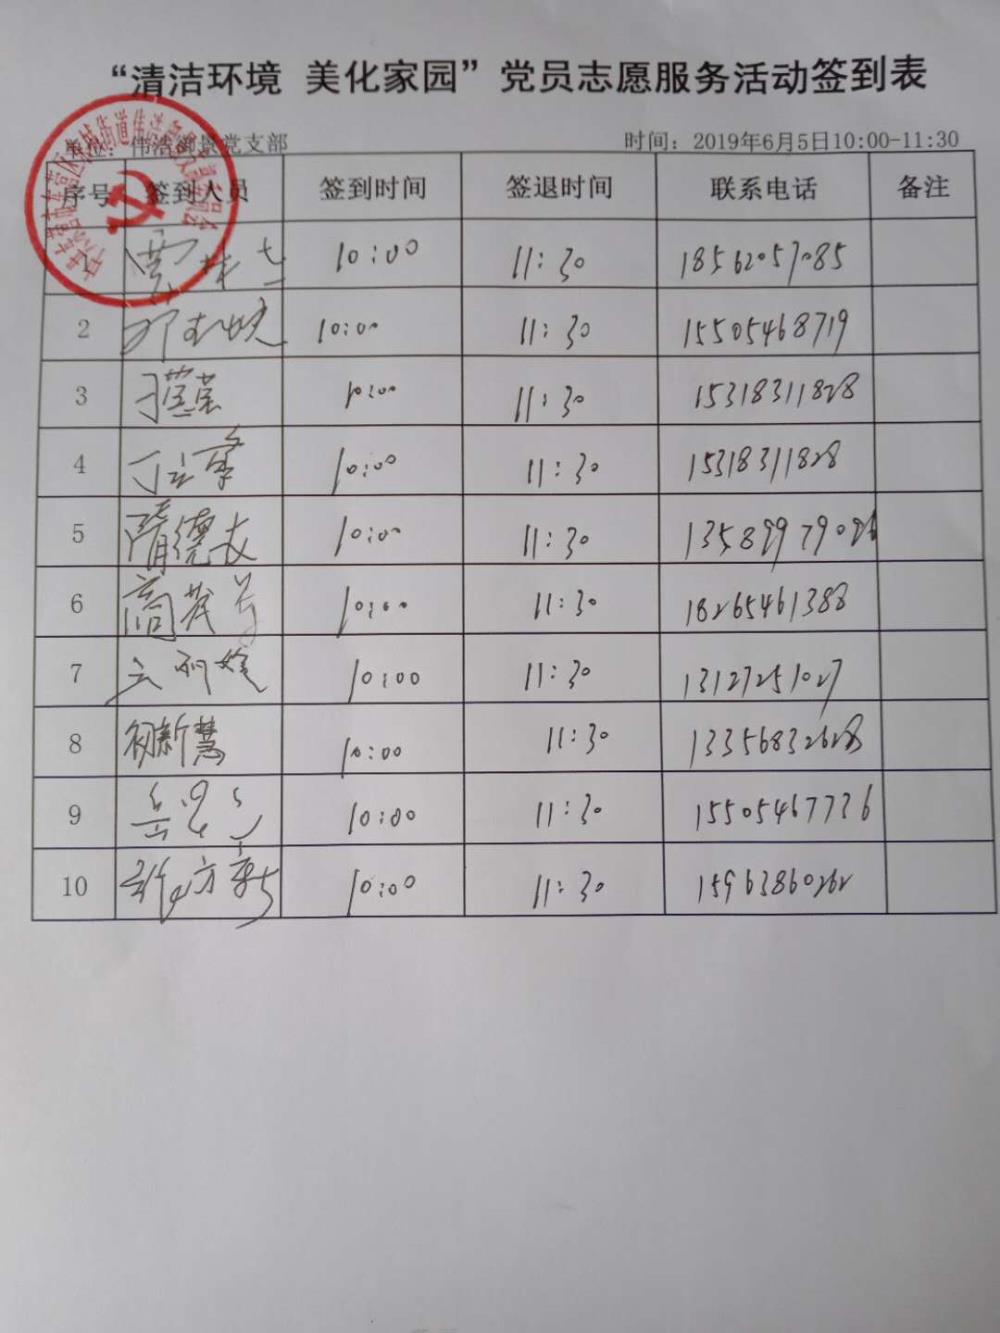 “清洁环境 美化家园”党员志愿服务活动签到表
单位：伟浩御景党支部 时间：2019年6月5日10:00-11:30
序号 签到人员 签到时间 签退时间 联系电话 备注
10:00 11:30 18562057085
2 10:00 11:30 15505468719
3 10:00 11:30 15318311828
4 10:00 11:30 15318311828
5 隋德友 10:00 11:30
6 高茂芳 10:00 11:30 18265461388
7 10:00 11:30 13127251027
8 初新慧 10:00 11:30 13356832628
9 10:00 11:30 15505467726
10 10:00 11:30 15963860262